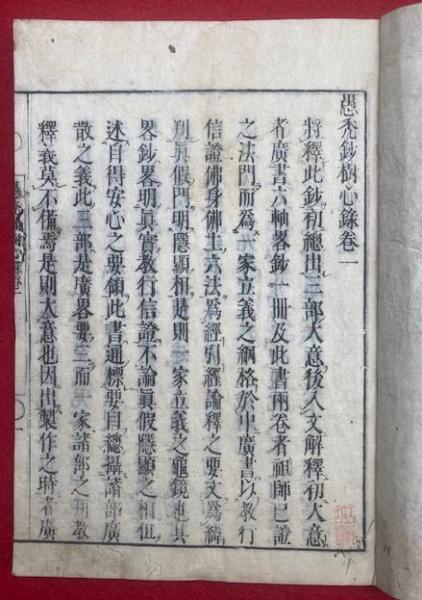 愚禿鈔樹心錄卷一
將釋此鈔初總出三部大意後入文解釋初大意
者廣書六軸畧鈔一冊及此書兩卷者祖師已證
之法門而爲一家立義之綱格於中廣書以教行
信證佛身佛土六法爲經引經論釋之要文爲緯
判眞假門明隱顯相是則一家立義之龜鏡也其
畧鈔畧明眞實教行信證不論眞假隱顯之相但
述自得安心之要領此書通標要目總攝諸部廣
散之義此三部是廣畧要三而一家諸部之教
釋義莫不備焉是則大意也因出製作之時者廣